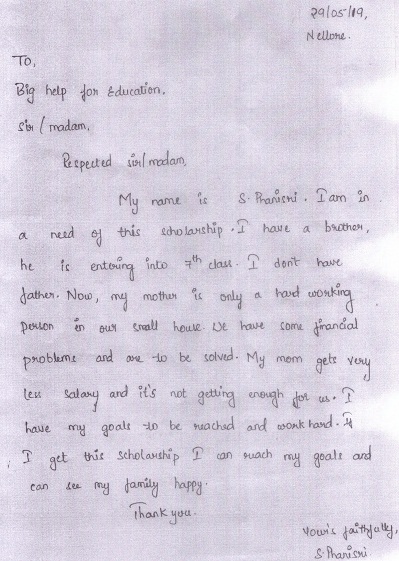 29/05/19,
Nellore.
To,
Big help for Education.
Sir/madam,
Respected sir/madam,
My name is S. Phanisri. I am in
a need of this scholarship. I have a brother,
he is entering into 7th class. I don't have
father. Now, my mother is only a hard working
person in our small house. We have some financial
problems and are to be solved. My mom gets very
less salary and it's not getting enough for us. I
have my goals to be reached and work hard. If
I get this scholarship I can reach my goals and
can see my family happy.
Thank you.
Your's faithfully,
S. Phanisri